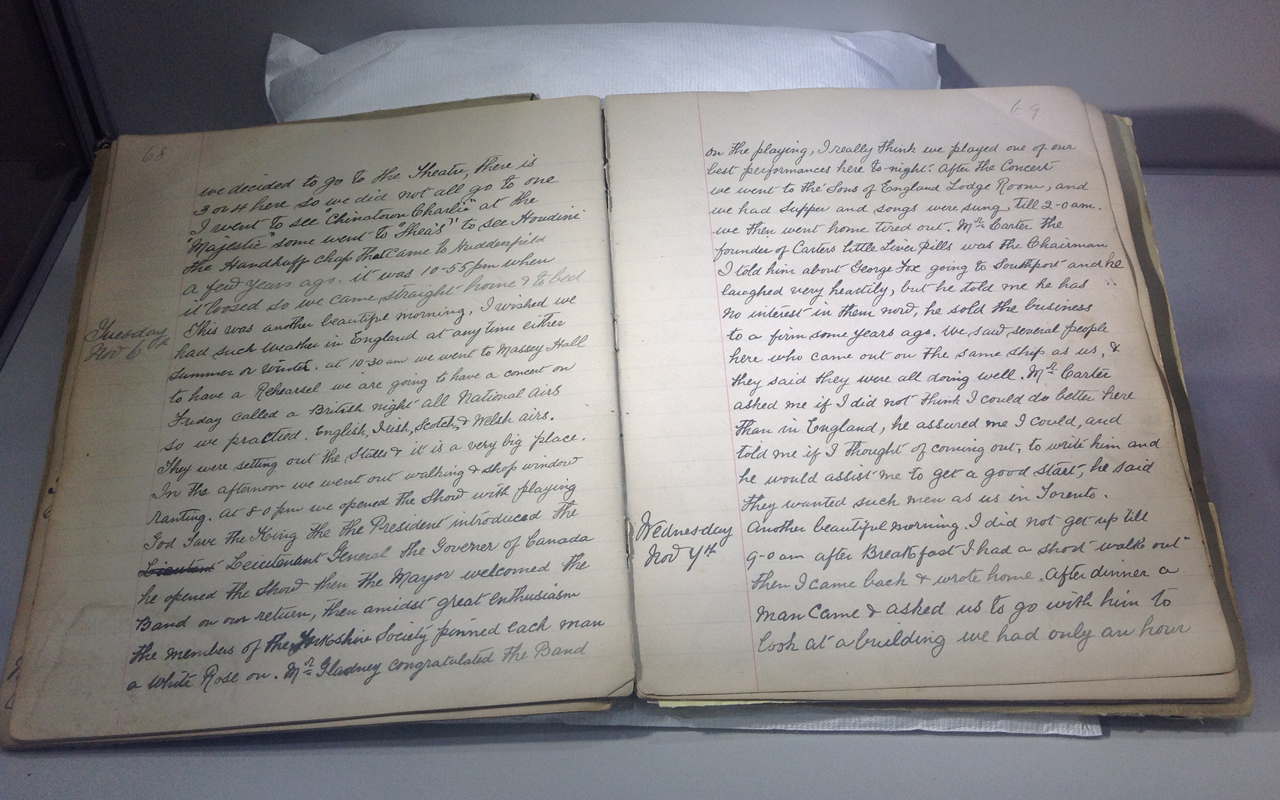 68
we decided to go to the Theatre, there is
3 or 4 here so we did not all go to one
I went to see "Chinatown Charlie" at the
"Majestic" some went to "Shea's" to see Houdini
the Handkuff chap that came to Huddersfield
a few years ago. it was 10-55 pm when
it loosed so we came straight home & to bed
Tuesday
Nov 6th
This was another beautiful morning, I wished we
had such weather in England at any time either
summer or winter. at 10-30 am we went to Massey Hall
to have a Rehearsel we are going to have a concert on
Friday called a British night all National airs
so we practied. English, Irish, Scotch, & Welsh airs.
They were setting out the Stalls & it is a very big place.
In the afternoon we went out walking & shop window
ranting. at 8-0 pm we opened the Show with playing
God Save the King the the President introduced the
Leieutenant General the Govener of Canada
he opened the Show then the Mayor welcomed the
Band on our return, then amidst great enthusiasm
the members of the Yorkshire Society pinned each man
a White Rose on. Mr Gladney congratulated the Band
69
on the playing, I really think we played one of our
best performances here to-night. After the Concert
we went to the Sons of England Lodge Room, and
we had supper and songs were sung till 2-0 am.
we then went home tired out. Mr Carter the
founder of Carters Little Liver Pills was the Chairman
I told him about George Fox going to Southport and he
laughed very heartily, but he told me he has
no interest in them now, he sold the business
to a firm some years ago. We saw several people
here who came out on the same ship as us, &
they said they were all doing well. Mr Carter
asked me if I did not think I could do better here
than in England, he assured me I could, and
told me if I thought of coming out, to write him and
he would assist me to get a good start, he said
they wanted such men as us in Toronto.
Wednesday
Nov 7th
Another beautiful morning. I did not get up till
9-0 am after Breakfast I had a short walk out
then I came back & wrote home. After dinner a
man came & asked us to go with him to
look at a building we had only an hour